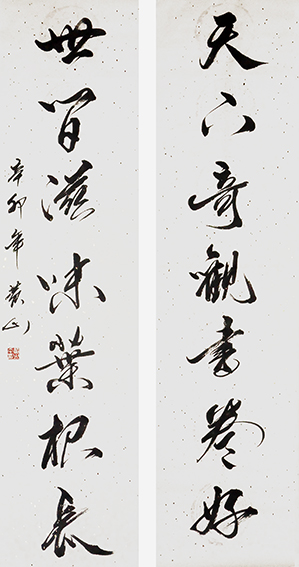 天下奇觀書卷好
世間滋味菜根長
辛卯年 黄山